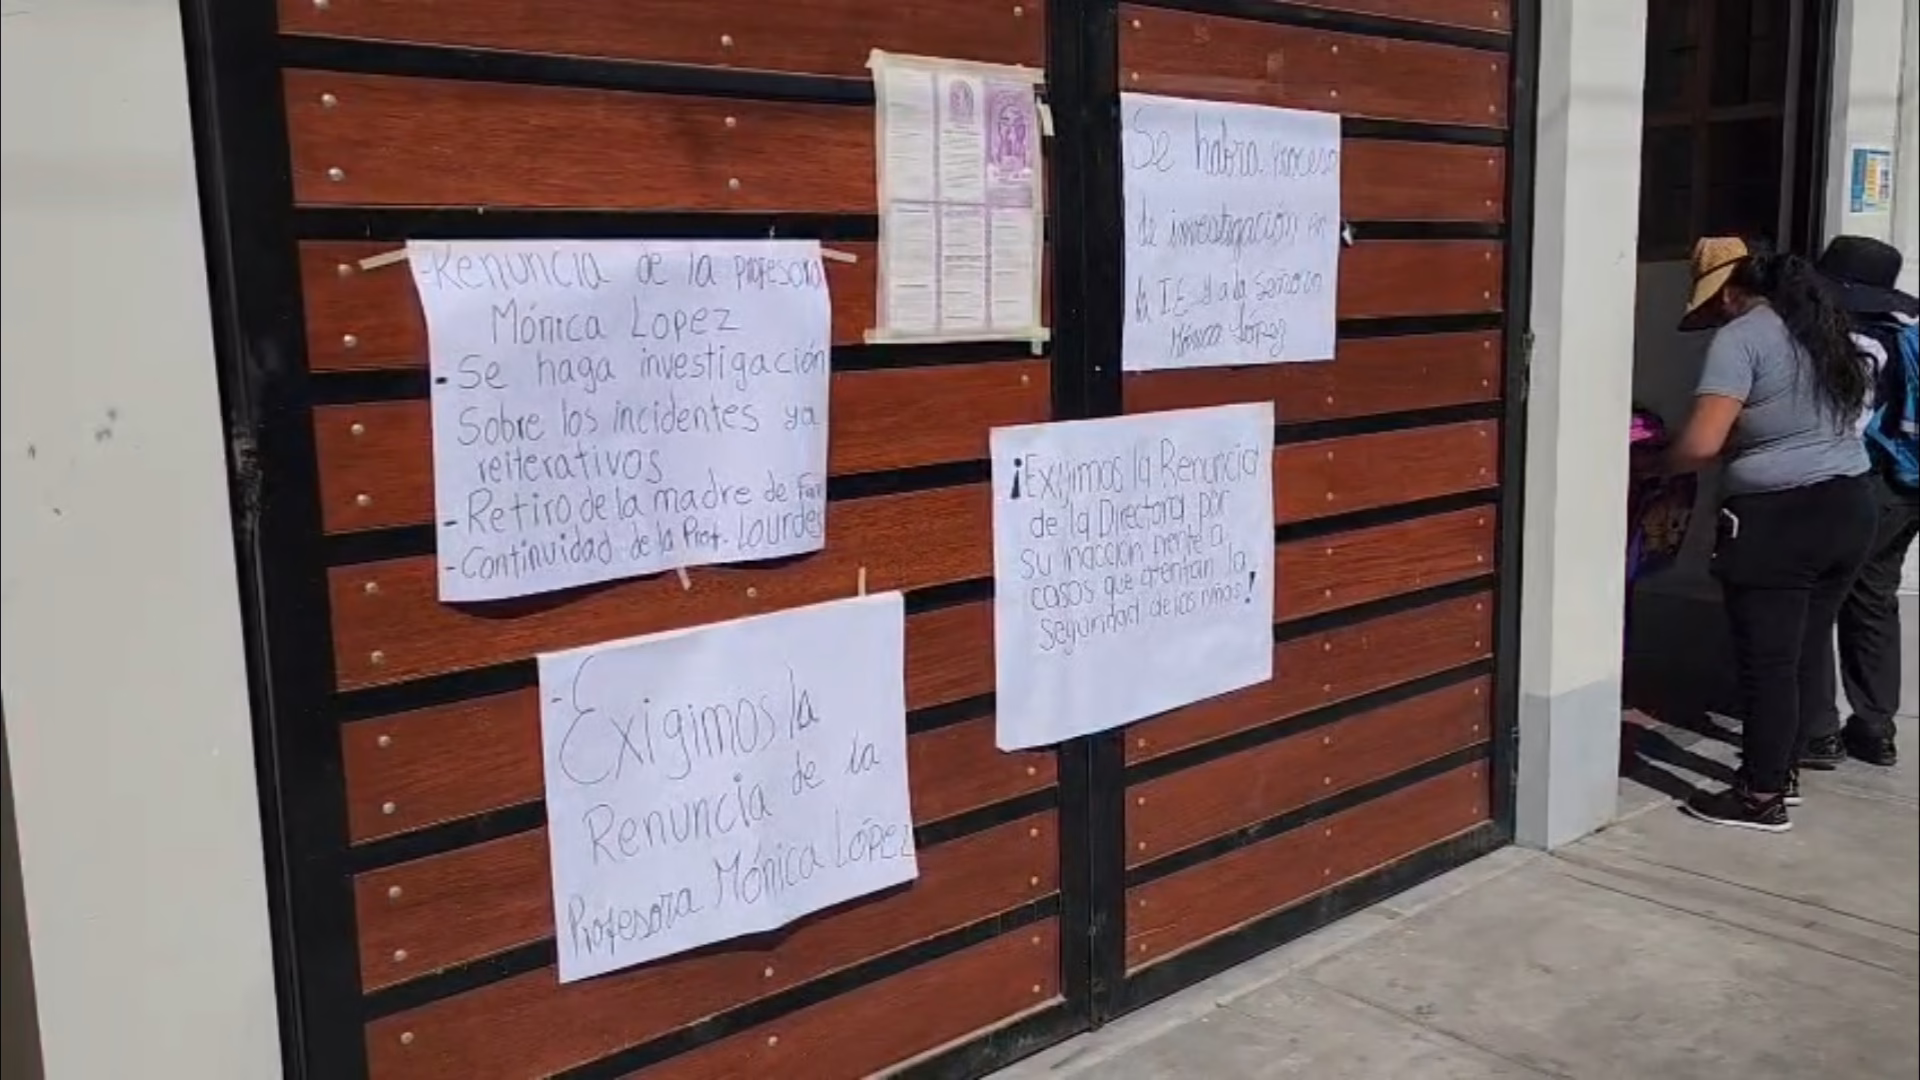 -Renuncia de la profesora
Mónica Lopez
-Se haga investigación
Sobre los incidentes ya
reiterativos
-Retiro de la madre de Fam
-Continuidad de la Prof. Lourdes
-Exigimos la
Renuncia de la
Profesora Mónica López
Se habra proceso
de investigación en
la I.E y a la Señora
Mónica López
¡Exijimos la Renuncia
de la Directora por
su inacción frente a
casos que atentan la
Seguridad de los niños!